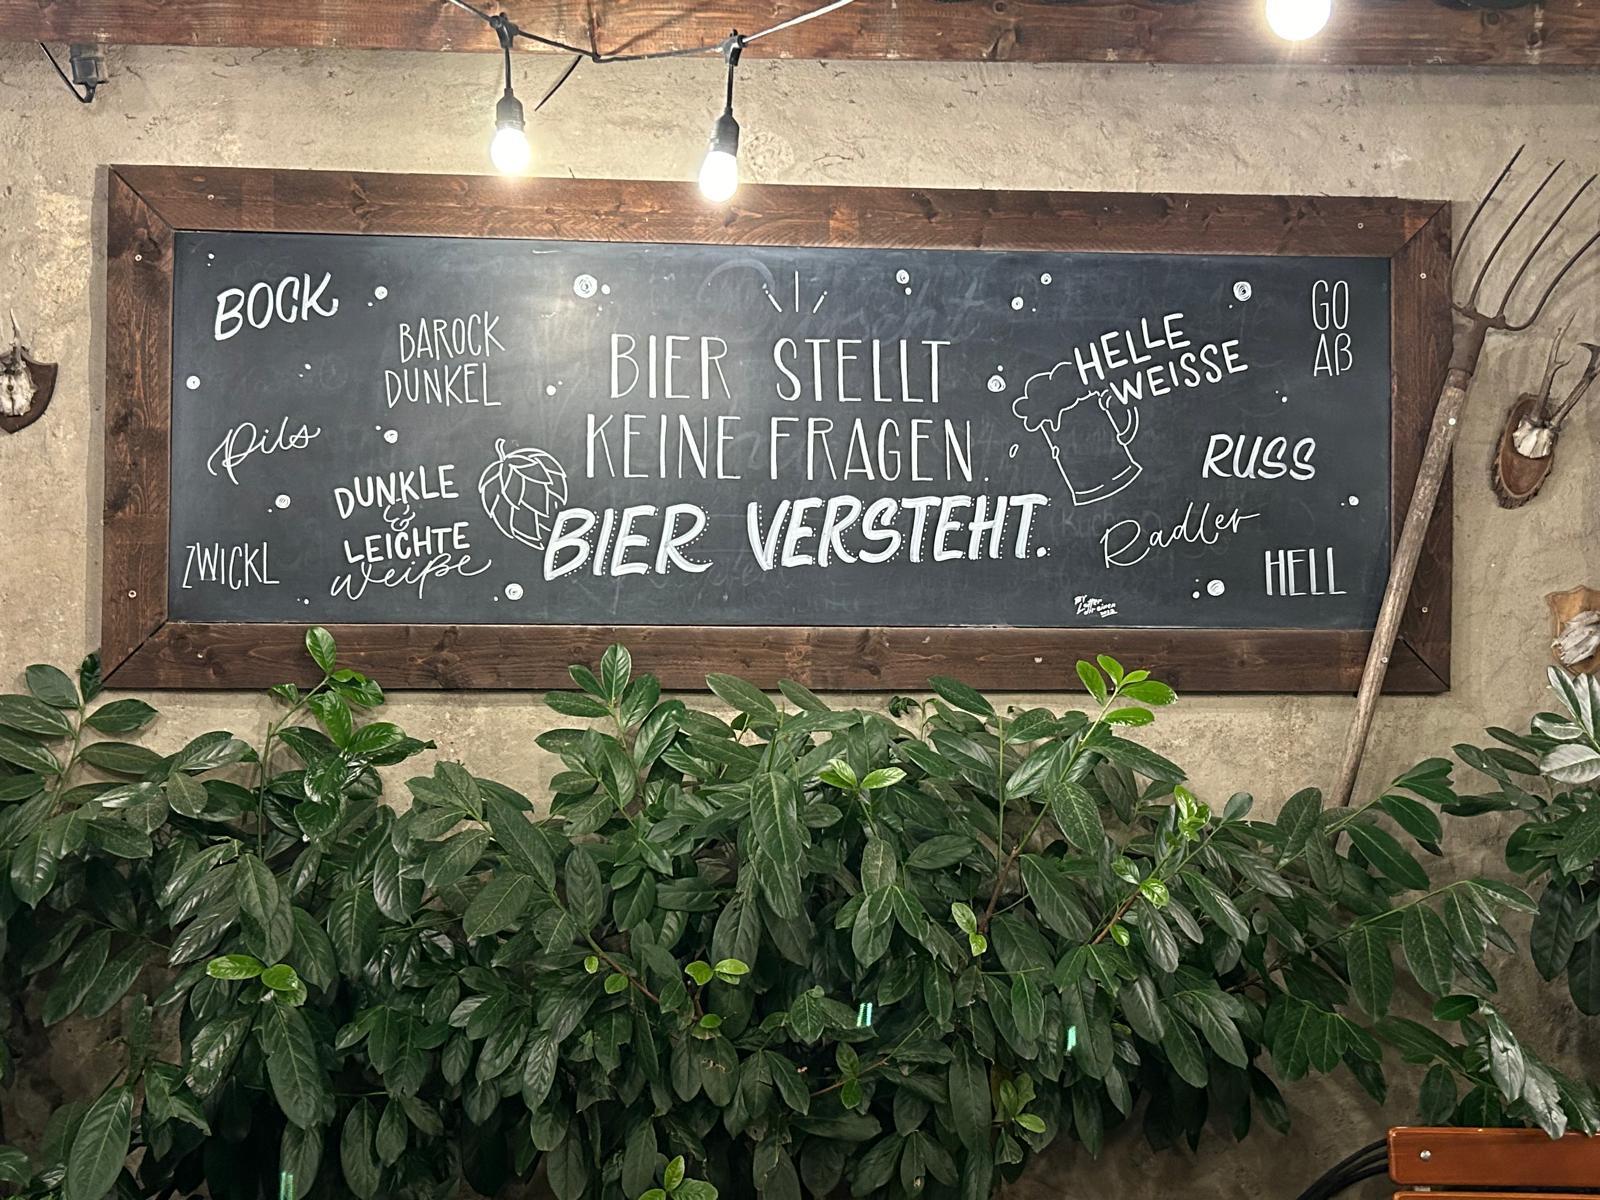 BOCK
BAROCK
DUNKEL
Pils
DUNKLE
&
LEICHTE
Weiße
ZWICKL
BIER STELLT
KEINE FRAGEN.
BIER VERSTEHT.
HELLE
WEISSE
GO
Aß
RUSS
Radler
HELL
BY